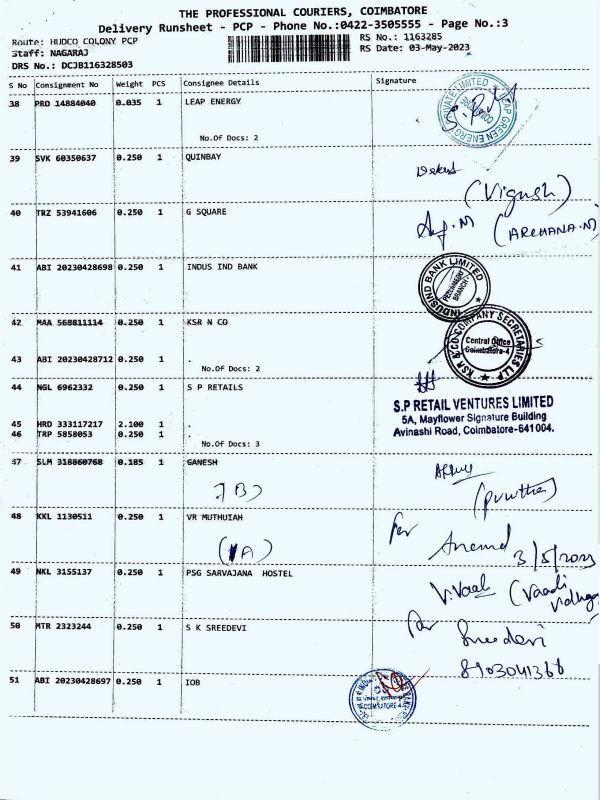 THE PROFESSIONAL COURIERS, COIMBATORE
Delivery Runsheet - PCP - Phone No.:0422-3505555 - Page No.:3
Route: HUDCO COLONY PCP
RS No.: 1163285
Staff: NAGARAJ
RS Date: 03-May-2023
DRS No.: DCJB116328503
S No Consignment No Weight PCS Consignee Details Signature
38 PRO 14884040 0.035 1 LEAP ENERGY
No.Of Docs: 2
39 SVK 60350637 0.250 1 QUINBAY
(Vignesh)
40 TRZ 53941606 0.250 1 G SQUARE
(ARCHANA.M)
41 ABI 20230428698 0.250 1 INDUS IND BANK
INDUSIND BANK LIMITED
BRANCH
42 MAA 560811114 0.250 1 KSR N CO
KSR & CO COMPANY SECRETARIES LLP
Central Office
Coimbatore-4
43 ABI 20230428712 0.250 1 .
No.Of Docs: 2
44 NGL 6962332 0.250 1 S P RETAILS
S.P RETAIL VENTURES LIMITED
5A, Mayflower Signature Building
Avinashi Road, Coimbatore-641004.
45 HRD 333117217 2.100 1 .
46 TRP 5858053 0.250 1 .
No.Of Docs: 3
47 SLM 318860768 0.185 1 GANESH
7B)
48 KKL 1130511 0.250 1 VR MUTHUIAH
(1A)
For
3/5/2023
49 NKL 3155137 0.250 1 PSG SARVAJANA HOSTEL
50 MTR 2323244 0.250 1 S K SREEDEVI
For
Sreedevi
8903041366
51 ABI 20230428697 0.250 1 IOB
COIMBATORE-4